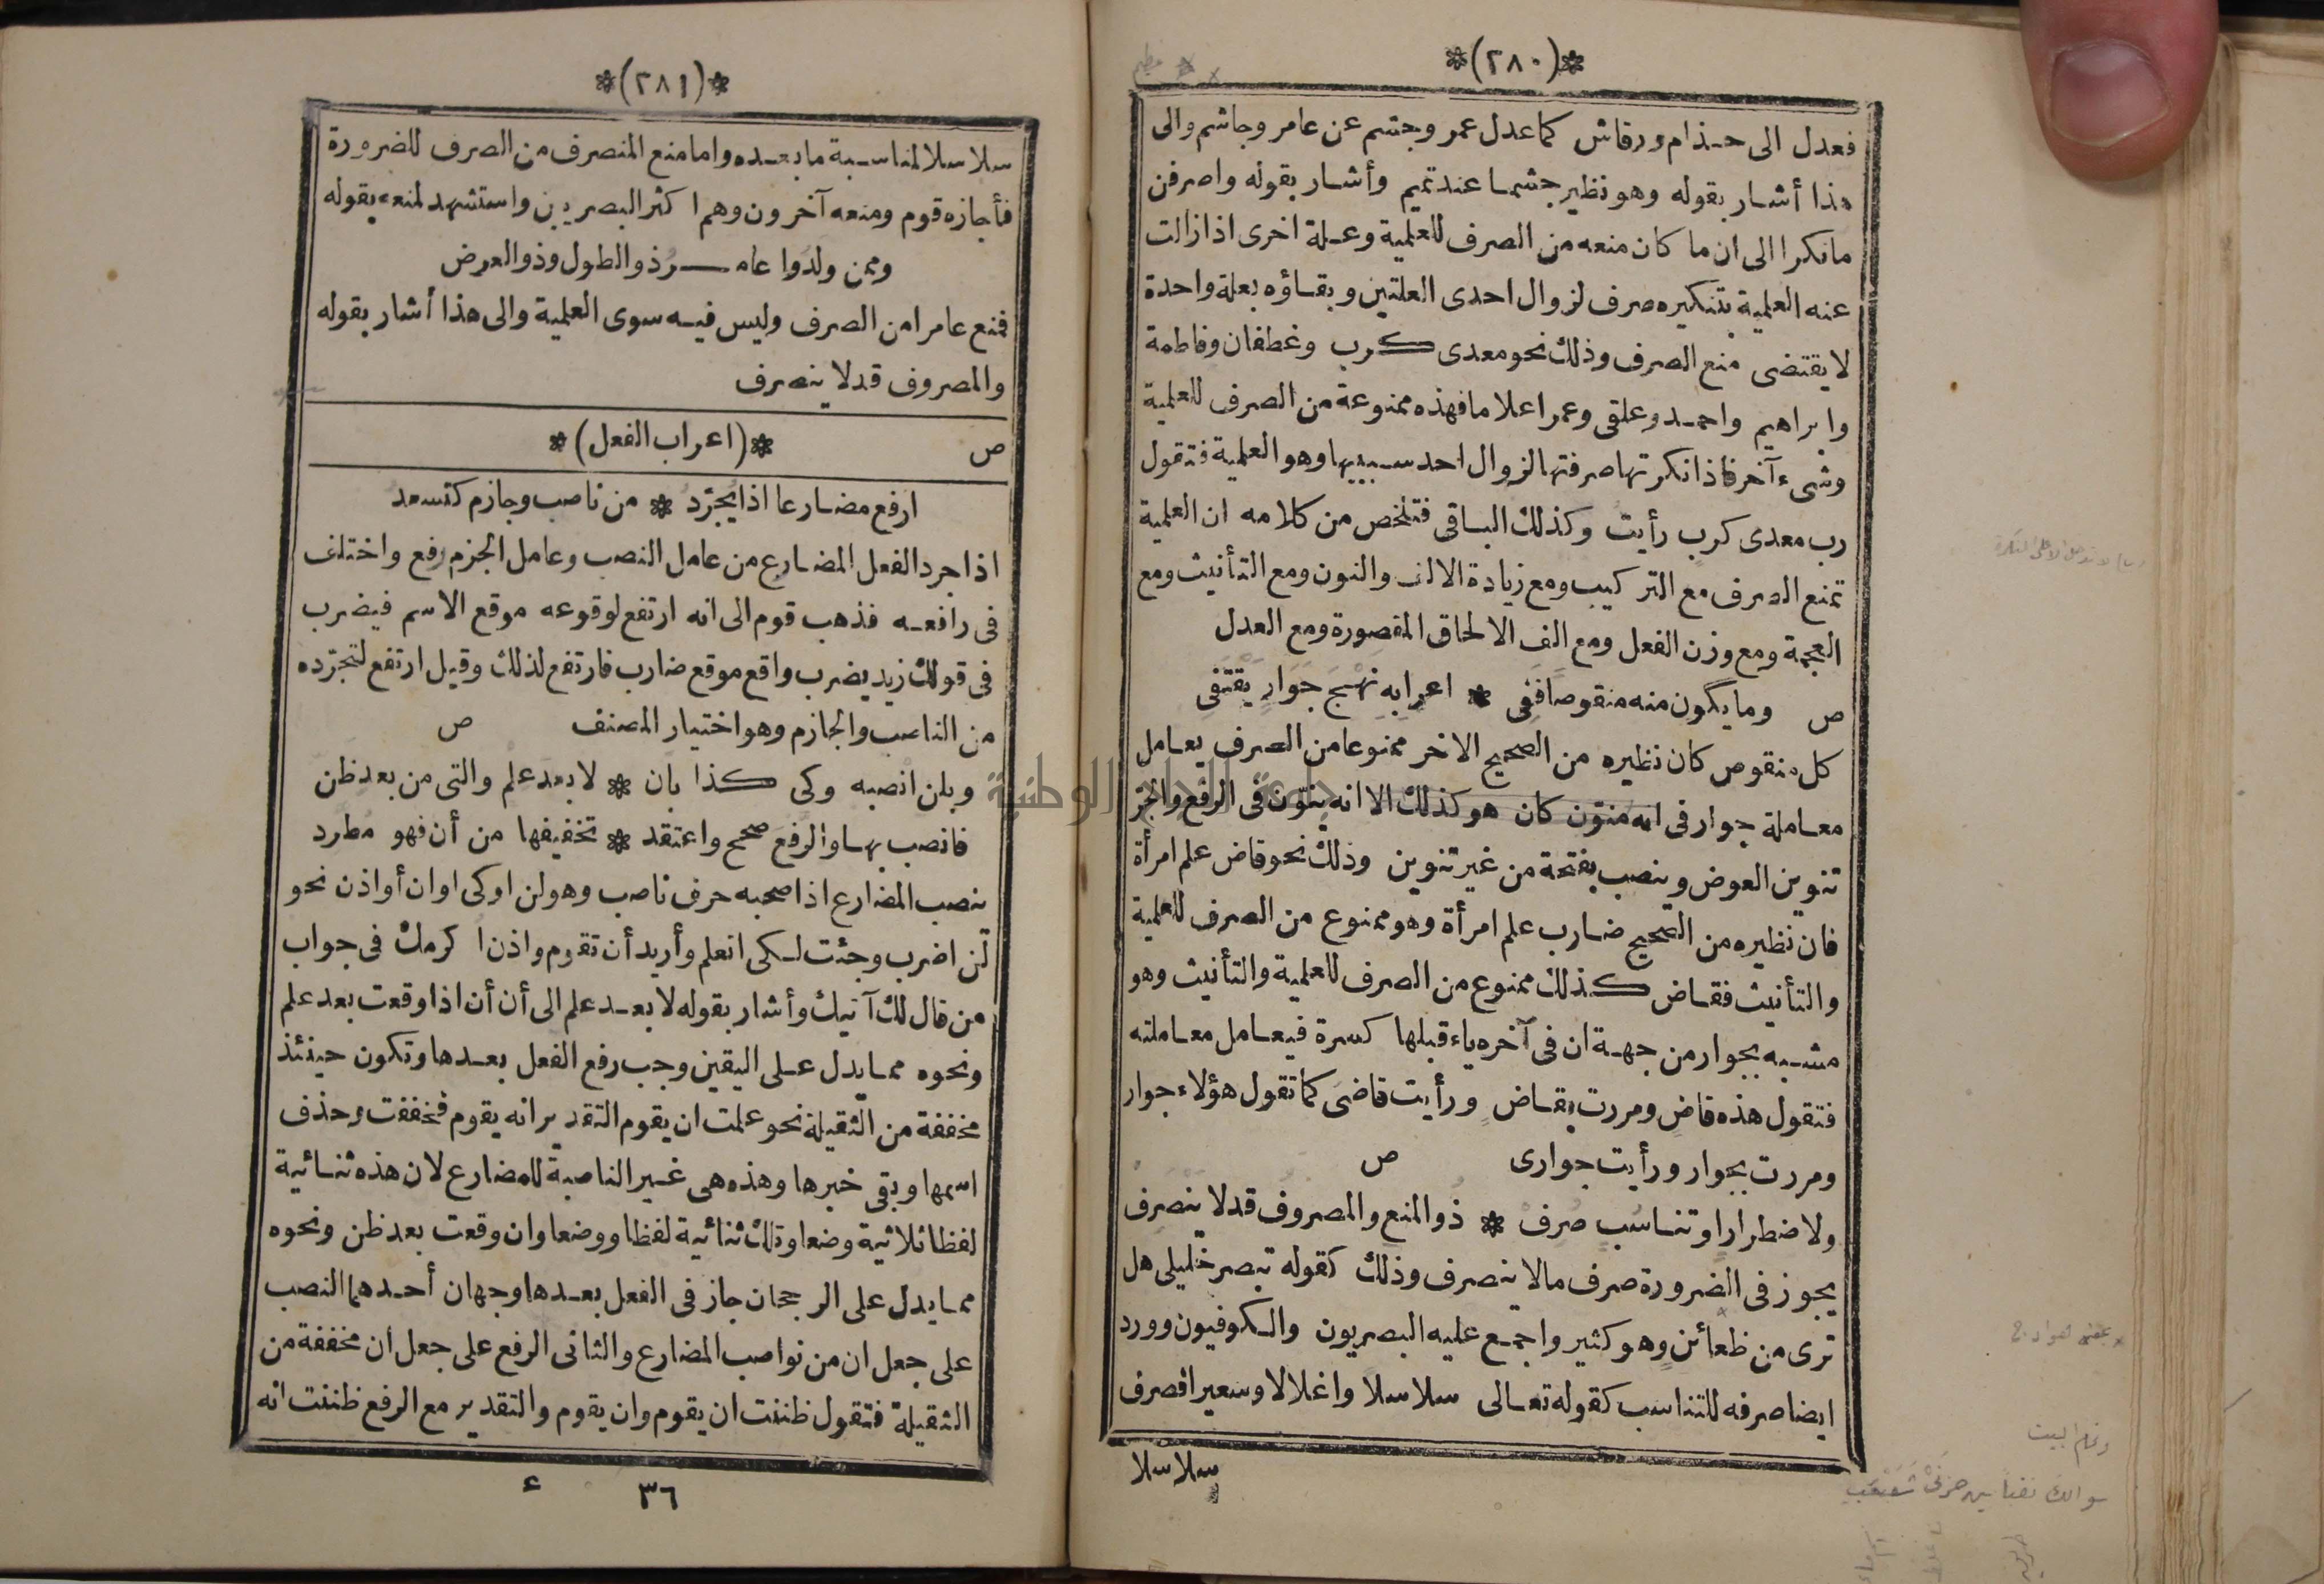 *(٢٨٠)*
فعدل الى حذام ورقاش كما عدل عمر وجشم عن عامر وجاشم والى
هذا أشار بقوله وهو نظير جشما عند تميم وأشار بقوله واصرفن
مانكرا الى ان ما كان منعه من الصرف للعلمية وعلة اخرى اذا زالت
عنه العلمية بتنكيره صرف لزوال احدى العلتين وبقاؤه بعلة واحدة
لا يقتضى منع الصرف وذلك نحو معدى كرب وغطفان وفاطمة
وابراهيم واحمد وعلقى وعمر اعلاما فهذه ممنوعة من الصرف للعلمية
وشىء آخر فاذا نكرتها صرفتها لزوال احد سببيها وهو العلمية فتقول
رب معدى كرب رأيت وكذلك الباقى فتلخص من كلامه ان العلمية
تمنع الصرف مع التركيب ومع زيادة الالف والنون ومع التأنيث ومع
العجمة ومع وزن الفعل ومع الف الالحاق المقصورة ومع العدل
ص وما يكون منه منقوصا ففى * اعرابه نهج جوار يقتفى
كل منقوص كان نظيره من الصحيح الاخر ممنوعا من الصرف يعامل
معاملة جوار فى انه منوّن كان هو كذلك الا انه ينوّن فى الرفع والجرّ
تنوين العوض وينصب بفتحة من غير تنوين وذلك نحو قاض علم امرأة
فان نظيره من الصحيح ضارب علم امرأة وهو ممنوع من الصرف للعلمية
والتأنيث فقاض كذلك ممنوع من الصرف للعلمية والتأنيث وهو
مشبه بجوار من جهة ان فى آخره ياء قبلها كسرة فيعامل معاملته
فتقول هذه قاض ومررت بقاض ورأيت قاضى كما تقول هؤلاء جوار
ومررت بجوار ورأيت جوارى ص
ولاضطرار او تناسب صرف * ذو المنع والمصروف قد لا ينصرف
يجوز فى الضرورة صرف مالا ينصرف وذلك كقوله تبصر خليلى هل
ترى من ظعائن وهو كثير واجمع عليه البصريون والكوفيون وورد
ايضا صرفه للتناسب كقوله تعالى سلاسلا واغلالا وسعيرا فصرف
سلاسلا
*(٢٨١)*
سلاسلا لمناسبة ما بعده واما منع المنصرف من الصرف للضرورة
فأجازه قوم ومنعه آخرون وهم اكثر البصريين واستشهد لمنعه بقوله
وممن ولدوا عامر ذو الطول وذو العرض
فمنع عامر امن الصرف وليس فيه سوى العلمية والى هذا أشار بقوله
والمصروف قد لا ينصرف
ص *(اعراب الفعل)*
ارفع مضارعا اذا يجرّد * من ناصب وجازم كتسعد
اذا جرد الفعل المضارع من عامل النصب وعامل الجزم رفع واختلف
فى رافعه فذهب قوم الى انه ارتفع لوقوعه موقع الاسم فيضرب
فى قولك زيد يضرب واقع موقع ضارب فارتفع لذلك وقيل ارتفع لتجرّده
من الناصب والجازم وهو اختيار المصنف ص
وبلن انصبه وكى كذا بان * لا بعد علم والتى من بعد ظن
فانصب بها والرفع صحح واعتقد * تخفيفها من أن فهو مطرد
ينصب المضارع اذا صحبه حرف ناصب وهو لن او كى او ان أو اذن نحو
لن اضرب وجئت لكى اتعلم وأريد أن تقوم واذن اكرمك فى جواب
من قال لك آتيك وأشار بقوله لا بعد علم الى أن أن اذا وقعت بعد علم
ونحوه مما يدل على اليقين وجب رفع الفعل بعدها وتكون حينئذ
مخففة من الثقيلة نحو علمت ان يقوم التقدير انه يقوم فخففت وحذف
اسمها وبقى خبرها وهذه هى غير الناصبة للمضارع لان هذه ثنائية
لفظا ثلاثية وضعا وتلك ثنائية لفظا ووضعا وان وقعت بعد ظن ونحوه
مما يدل على الرجحان جاز فى الفعل بعدها وجهان أحدهما النصب
على جعل ان من نواصب المضارع والثانى الرفع على جعل أن مخففة من
الثقيلة فتقول ظننت ان يقوم وان يقوم والتقدير مع الرفع ظننت انه
٣٦ ع